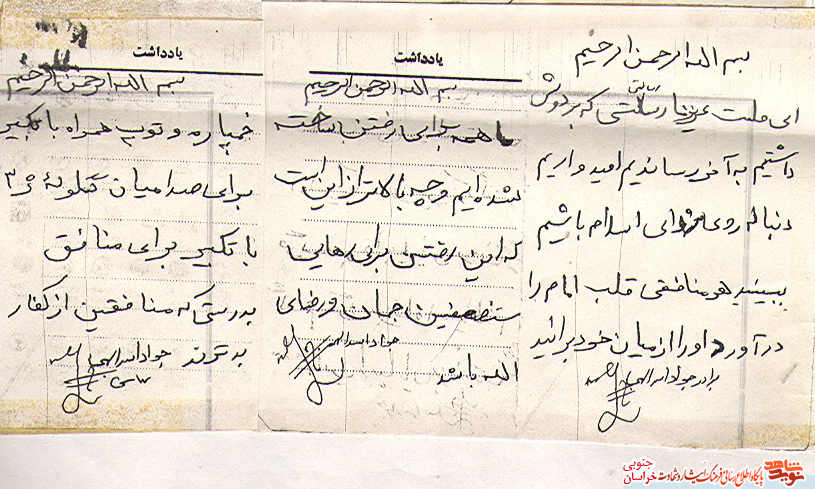 بسم الله الرحمن الرحیم
ای ملت عزیز ما رسالتی که بر دوش
داشتیم به آخر رساندیم امید واریم
دنباله روی برای اسلام باشیم
ببینید هر منافقی قلب امام را
در آورد او را از میان خود برانید
برادر جواد اسدالهی
یادداشت
بسم الله الرحمن الرحیم
ما همه برای رفتن ساخته
شده ایم و چه بالاتر از این است
که این رفتن برای رهایی
مستضعفین جهان و رضای
الله باشد
جواد اسدالهی
یادداشت
بسم الله الرحمن الرحیم
خمپاره و توپ همراه با تکبیر
برای صدامیان گلوله ژ۳
با تکبیر برای منافق
بدرستی که منافقین از کفار
بدترند جواد اسدالهی
نوید شاهد
پایگاه اطلاع رسانی فرهنگ ایثار و شهادت
خراسان جنوبی